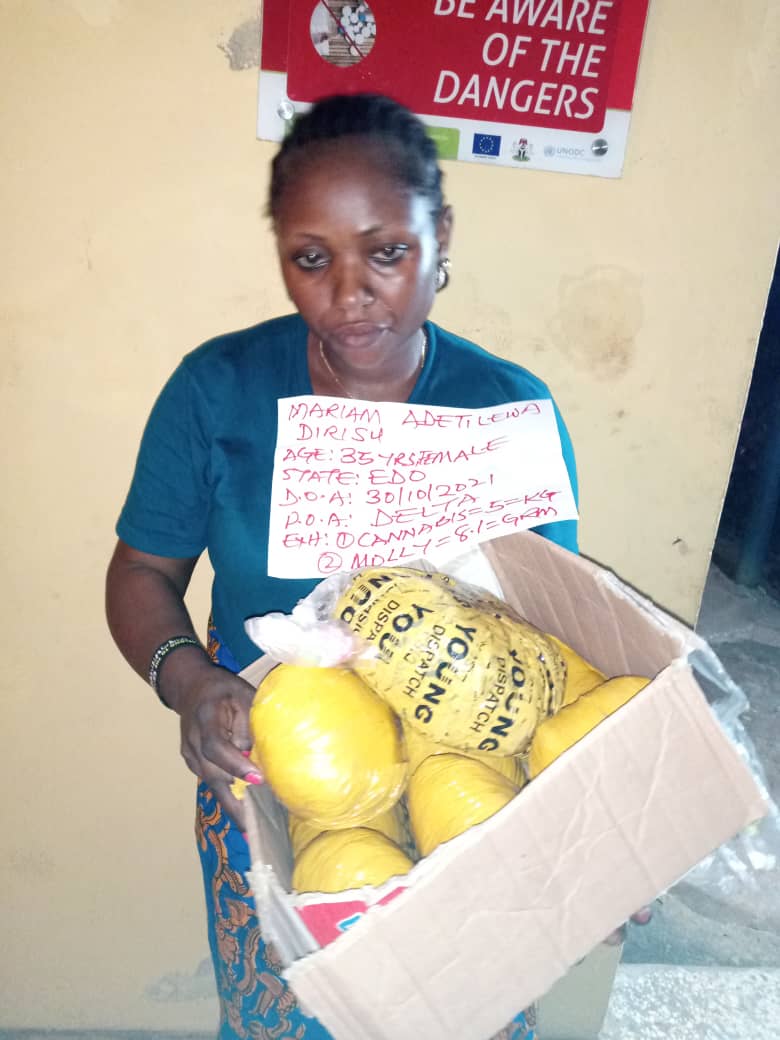 BE AWARE
OF THE
DANGERS
UNODC
MARIAM ADETILEWA
DIRISU
AGE: 35YRSFEMALE
STATE: EDO
D.O.A: 30/10/2021
P.O.A: DELTA
EXH: ① CANNABIS=5=KG
② MOLLY=8.1=GRM
YOUNG
DISPATCH
YOUNG
DISPATCH
YOUNG
DISPATCH
YOUNG